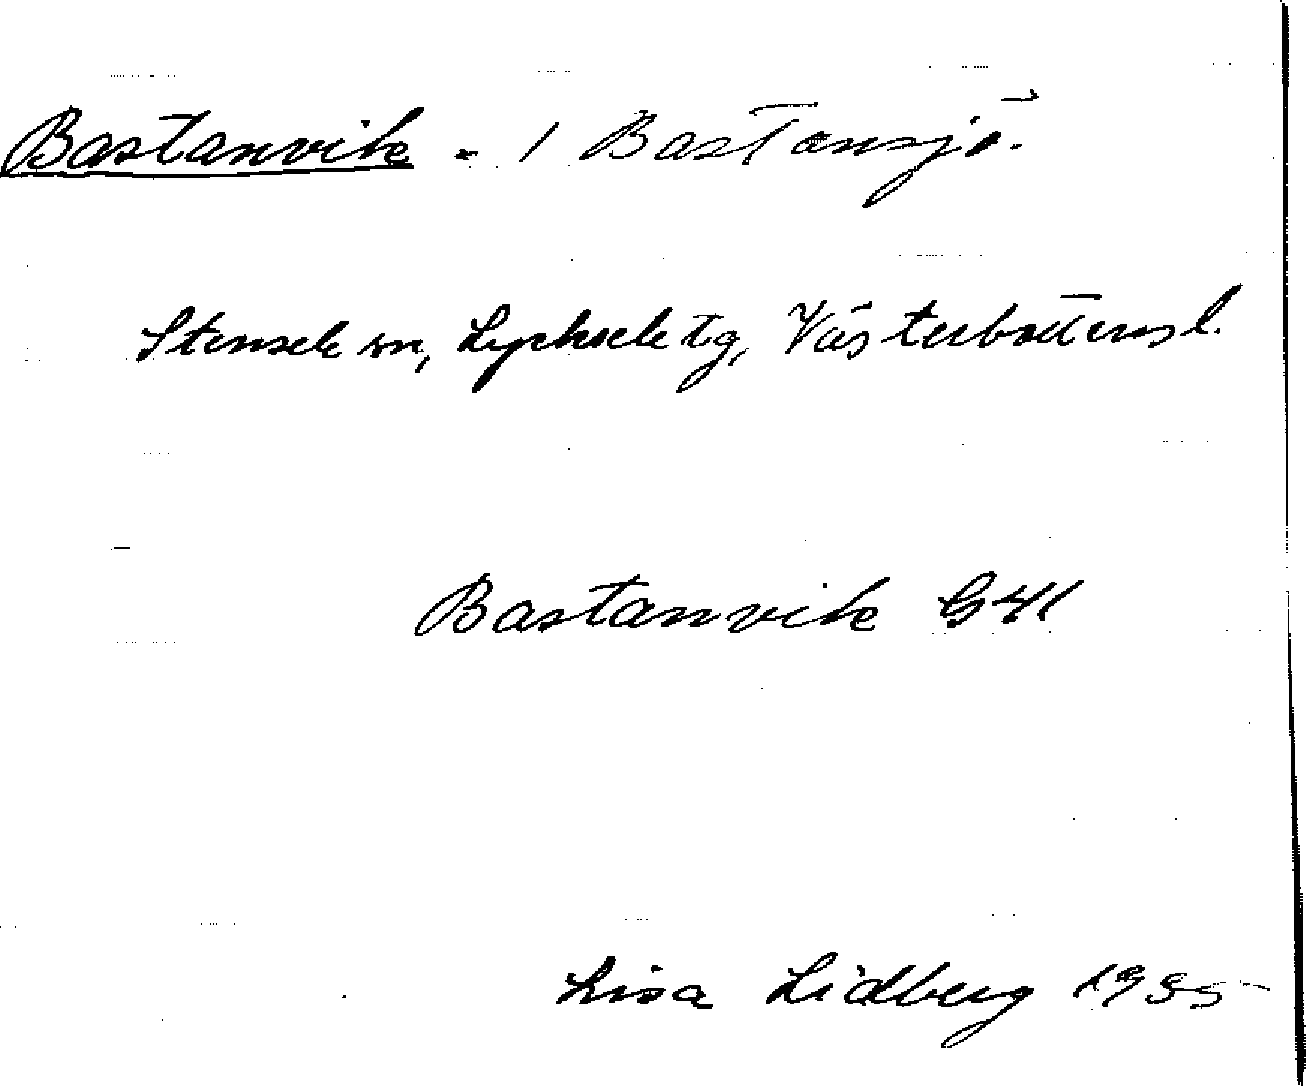 Bastanvik - 1 Bastansjö.
Stensele sn, Lycksele tg, Västerbottens l.
Bastanvik G41
Lisa Lidberg 1955